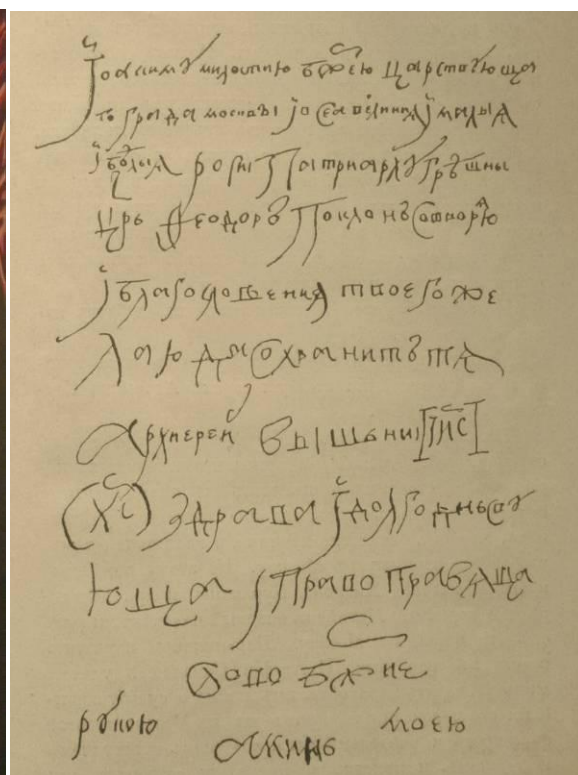 Їоакимꙋ милостию бж҃ею царствꙋюща
го града москвы ї всеа великия ї малыѧ
ї белыѧ росиї патриархꙋ грѣшны
црь Ѳеодоръ поклонъ сотворѧю
ї благословения твоего же
лаю да сохранитъ тѧ
архиереи вышьни ІИС
(ХС) здрава ї долгодньсꙋ
юща ї право правѧща
слово бж҃ие
рꙋкою моею
аминь